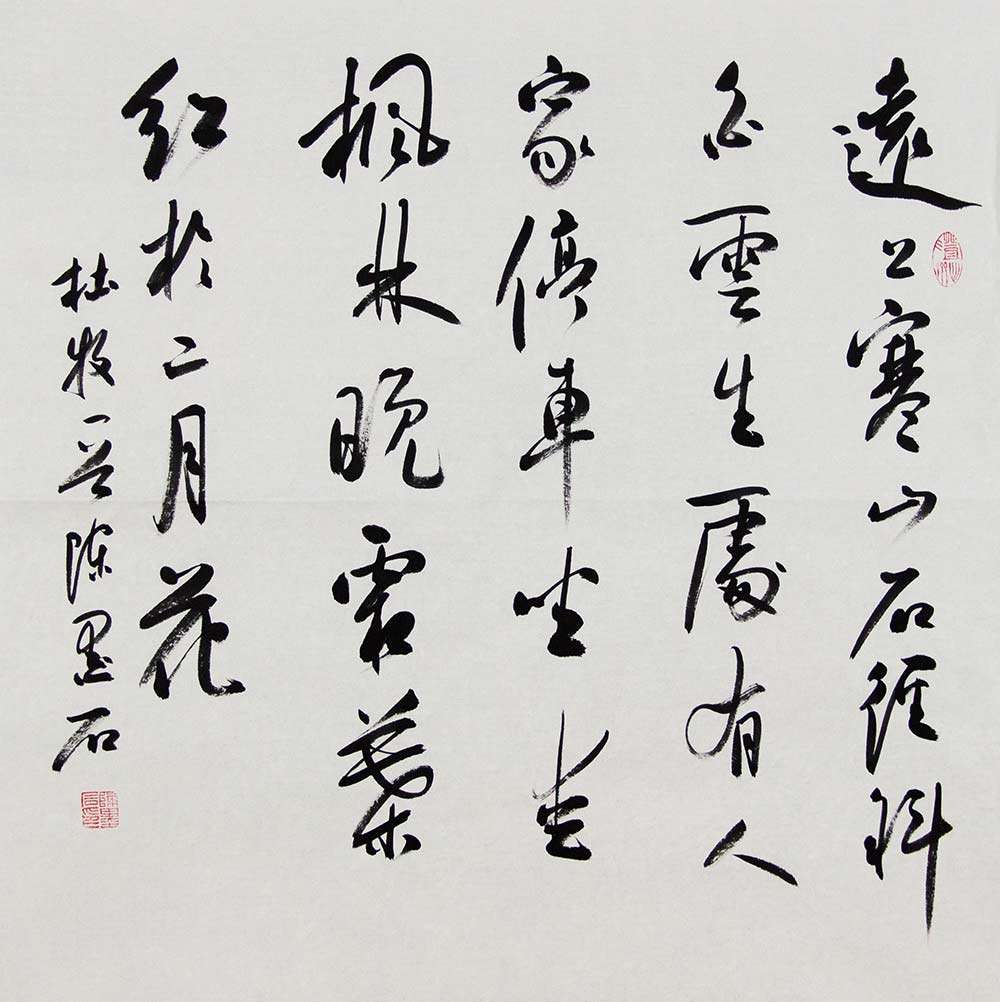 遠上寒山石徑斜
白雲生處有人
家停車坐愛
楓林晚霜葉
紅於二月花
杜牧一首陳墨石